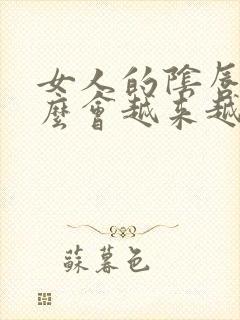 女人的陰唇
麼會越來越
蘇暮色